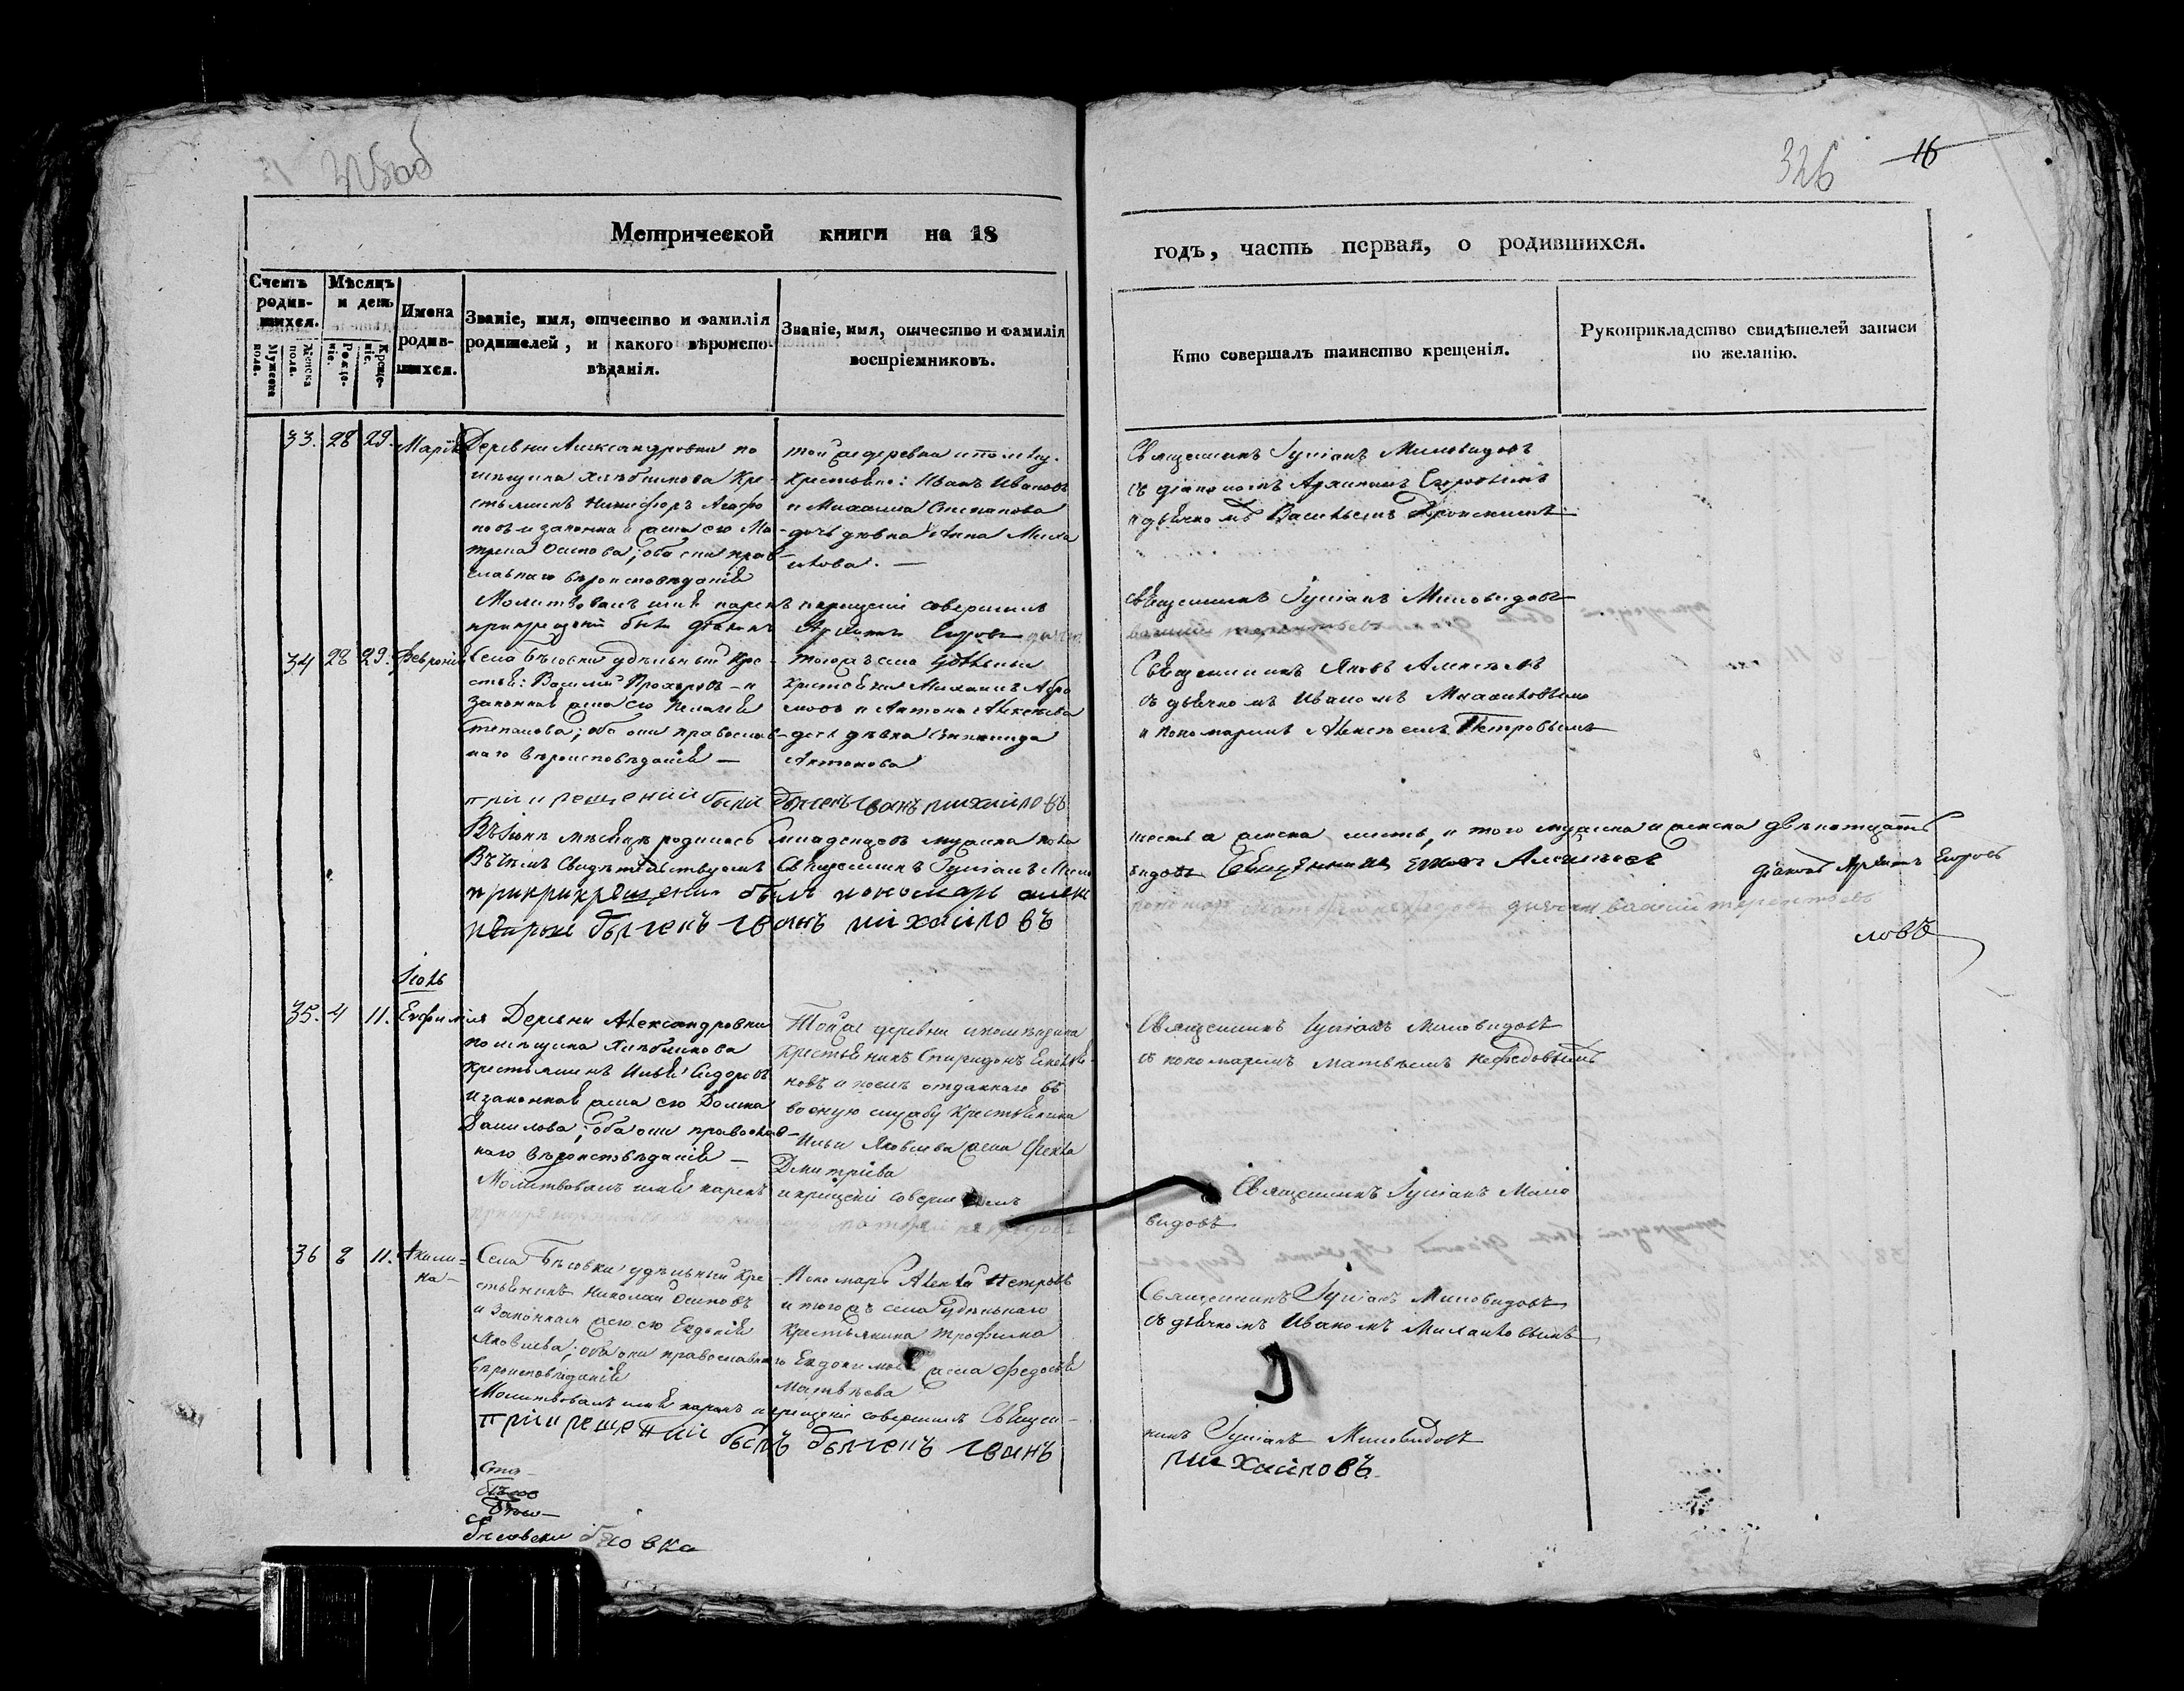 326
16
Метрической книги на 18
годъ, часть первая, о родившихся.
Счетъ родив-
шихся.
Мужеска пола.
Женска пола.
Мѣсяцъ
и день
Рожде-
ніе.
Креще-
ніе.
Имена
родив-
шихся.
Званіе, имя, отчество и фамилія
родителей, и какого вѣроиспо-
вѣданія.
Званіе, имя, отчество и фамилія
воспріемниковъ.
Кто совершалъ таинство крещенія.
Рукоприкладство свидѣтелей записи
по желанію.
33. 28 29. Марія
Деревни Александровки по
мѣщика Хлѣбникова Кре-
стьянинъ Никифоръ Агафо
новъ и законная жена его Ма
трена Осипова; оба они прав-
славнаго вѣроисповѣданія
той же деревни
крестьяне: Иванъ Ивановъ
и Михаила Степанова
дочь дѣвка Анна Миха
илова. —
Священникъ Іуліанъ Миловидовъ
съ діакономъ Архипомъ Егоровымъ
и дьячкомъ Васильемъ
Молитвовалъ имя нарекъ и крещеніе совершилъ
священникъ Іуліанъ Миловидовъ
при крещеніи былъ діаконъ Архипъ Егоровъ
34 28 29. Февронія
Села Бѣсовки удѣльный Кре-
стья: Василій Прохоровъ — и
законная жена его Пелагея
Степанова; оба они православ-
наго вѣроисповѣданія —
тогожъ села удѣльный
крестьянинъ Михаилъ Абра
мовъ и Антона Алексѣева
дочь дѣвка Степанида
Антонова
Священникъ Яковъ Алексѣевъ
съ дьячкомъ Иваномъ Михайловымъ
и пономаремъ Алексѣемъ Петровымъ
при крещеніи былъ дьячекъ іванъ михайловъ
Въ Іюнѣ мѣсяцѣ родилось младенцовъ мужеска пола
шесть а женска шесть, и того мужеска и женска двѣнатцать
Въ чемъ Свидѣтельствуемъ Священникъ Іуліанъ Мило
видовъ Священникъ Яковъ Алексѣевъ діаконъ Архипъ Егоровъ
при крещеніи былъ пономарь алекс
дьячекъ василій терентьевъ
петровъ дьячекъ іванъ михайловъ
ловъ
Іюль
35. 4 11. Евфимія
Деревни Александровки
помѣщика Хлѣбникова
крестьянинъ Илья Сидоровъ
и законная жена его Домна
Данилова; оба они православ-
наго вѣроисповѣданія —
Той же деревни и помѣщика
крестьянинъ Спиридонъ
новъ и отданнаго въ
военную службу крестьянина
Ильи Яковлева жена Фекла
Дмитріева
Священникъ Іуліанъ Миловидовъ
съ пономаремъ Матвѣемъ Нефедовымъ
Молитвовалъ имя нарекъ и крещеніе совершилъ
Священникъ Іуліанъ Мило
видовъ
36 8 11. Акили-
на —
Села Бѣсовки удѣльный кре
стьянинъ Николай Осиповъ
и законная жена его Евдокія
Яковлева; оба они православнаго
вѣроисповѣданія
Пономарь Алексѣй Петровъ
и тогожъ села удѣльнаго
крестьянина Трофима
Евдокимова жена Федосья
Матвѣева
Священникъ Іуліанъ Миловидовъ
съ дьячкомъ Иваномъ Михайловымъ
Молитвовалъ имя нарекъ и крещеніе совершилъ Священ-
никъ Іуліанъ Миловидовъ
при крещеніи былъ дьячекъ іванъ
михайловъ
бѣсовка